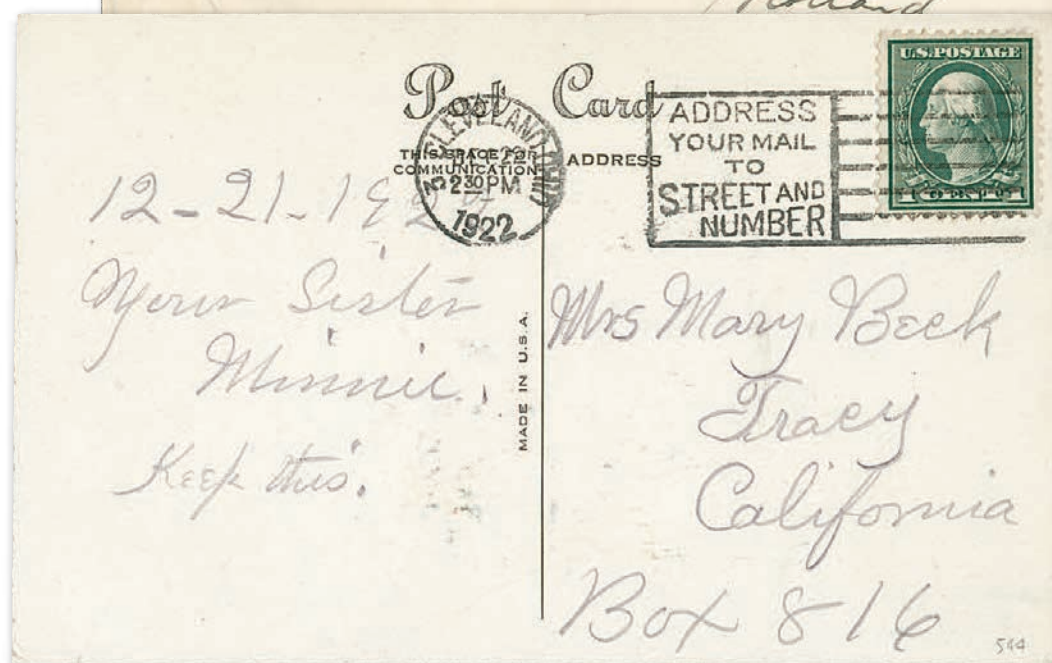 Holland
Post Card
THIS SPACE FOR
COMMUNICATION
ADDRESS
CLEVELAND, OHIO
3
2 30 PM
1922
ADDRESS
YOUR MAIL
TO
STREET AND
NUMBER
U.S. POSTAGE
1 1
12-21-192
Your Sister
Minnie.
Keep this.
MADE IN U.S.A.
Mrs Mary Beck
Tracy
California
Box 816
544